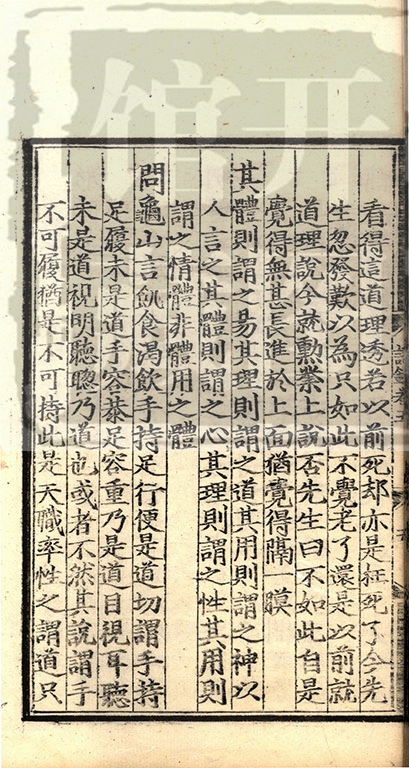 看得這道理透若以前死却亦是枉死了今先
生忽發歎以為只如此不覺老了還是以前就
道理說今就勳業上說否先生曰不如此自是
覺得無甚長進於上面猶覺得隔一膜
其體則謂之易其理則謂之道其用則謂之神以
人言之其體則謂之心其理則謂之性其用則
謂之情體非體用之體
問龜山言飢食渴飲手持足行便是道切謂手持
足履未是道手容恭足容重乃是道目視耳聽
未是道視明聽聰乃道也或者不然其說謂手
不可履猶足不可持此是天職率性之謂道只